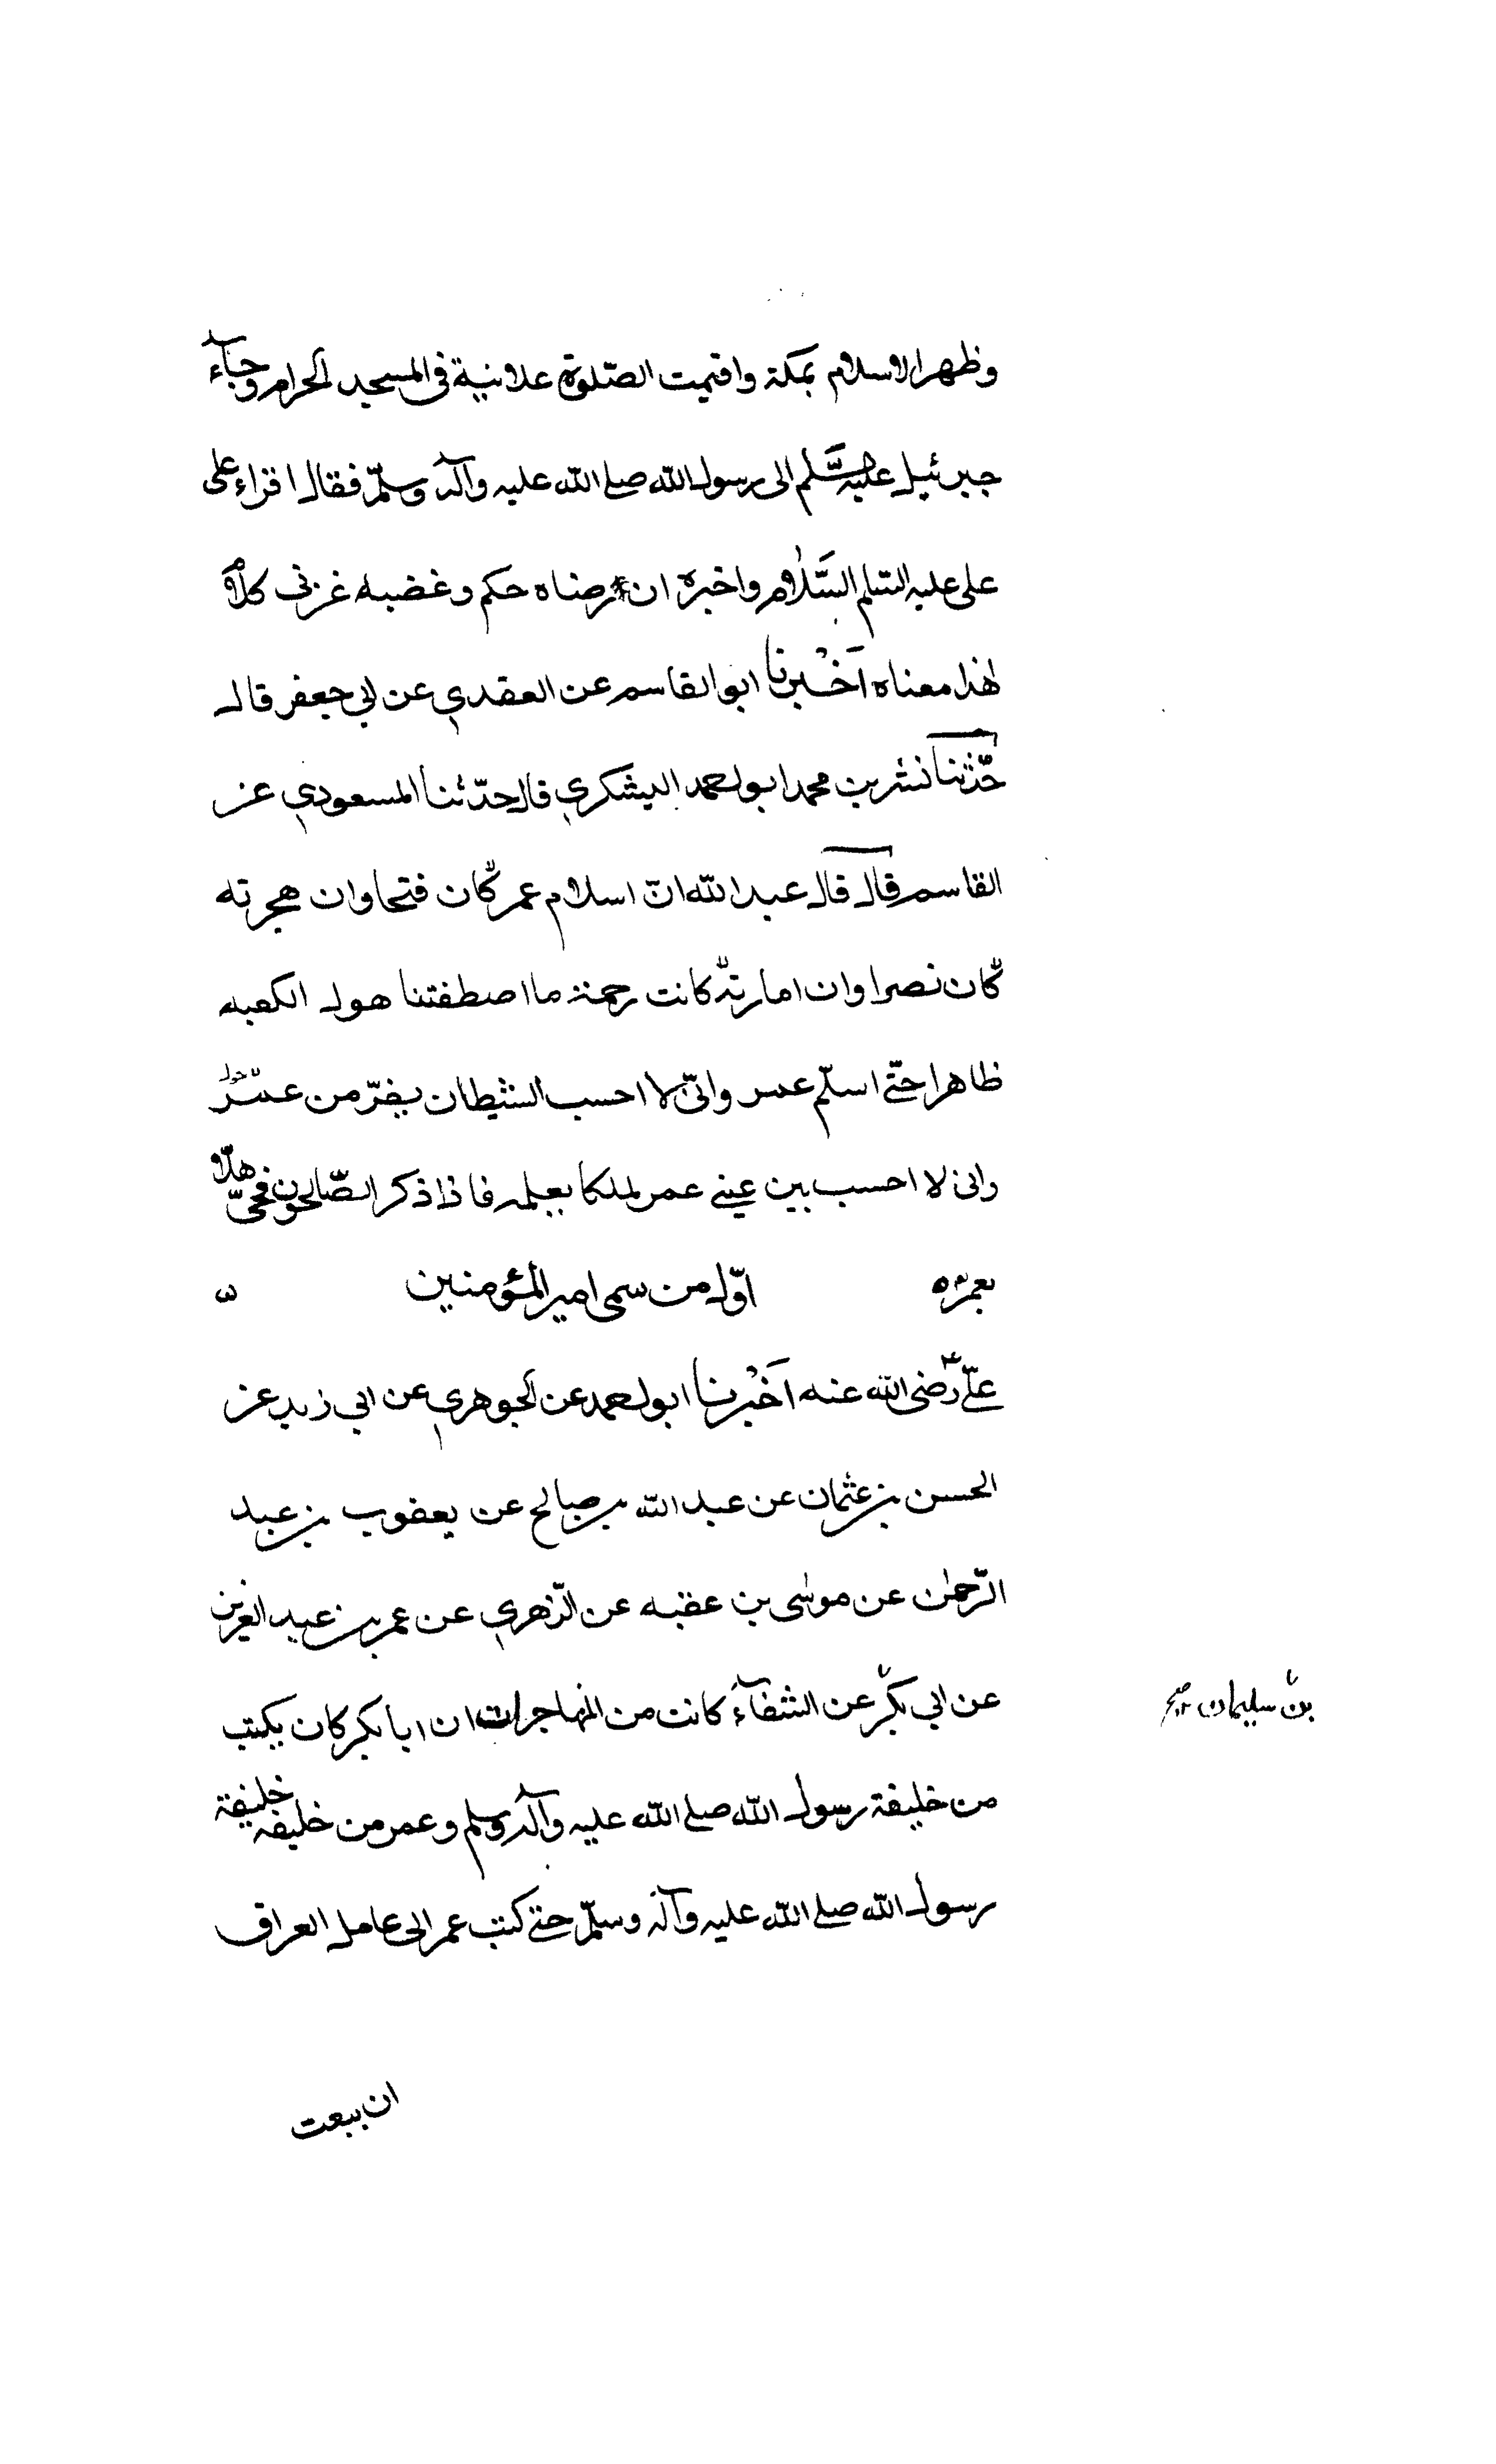 وظهر الاسلام بمكة واقيمت الصّلوة علانية فى المسجد الحرام وجآء
جبرئيل عليه السَّلم الى رسول الله صلى الله عليه وآله وسلّم فقال اقراء على
على عليه السلم السَّلام واخبره ان رضاه حكم وغضبه عز فى كلام
هذا معناه اَخْبرنا ابو القاسم عن العقدي عن ابي جعفر قال
حدّثنا نشر بن محمد ابو احمد اليشكري قال حدّثنا المسعودي عن
القاسم قال قال عبد الله انّ اسلام عمر كان فتحا وان هجرته
كان نصرا وان امارته كانت رحمة ما اصطفتنا هول الكعبه
ظاهرا حتّى اسلم عمر وانّى لا احسب الشيطان يفرّ من عمر
وانى لا احسب بين عينى عمر لملكا يعلمه فاذا ذكر الصّالحون فحىّ هلّا
بعمره اوّل من سمى امير المؤمنين
علىّ رضى الله عنه اَخْبرنا ابو احمد عن الجوهري عن ابي زيد عن
الحسن بن عثمان عن عبد الله بن صالح عن يعقوب بن عبد
الرّحمٰن عن موسٰى بن عقبه عن الزّهري عن عمر بن عبد العزيز
عن ابي بكر عن الشفآء كانت من المهاجرات ان ابا بكر كان يكتب
بن سليمان صح
من خليفة رسول الله صلى الله عليه وآله وسلم وعمر من خليفه خليفة
رسول الله صلى الله عليه وآله وسلّم حتى كتب عمر الى عامل العراق
ان يبعث